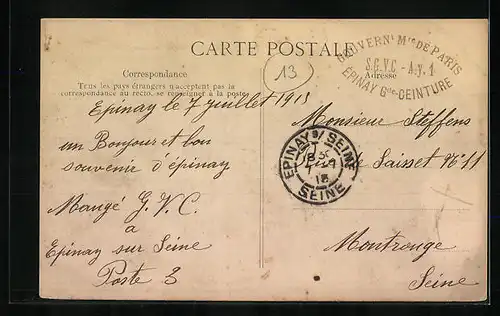 CARTE POSTALE
Correspondance
Tous les pays étrangers n'acceptent pas la
correspondance au recto, se renseigner à la poste.
Adresse
13
GOUVERNt Mre DE PARIS
S.G.V.C - A.Y. 1
ÉPINAY Gde CEINTURE
Epinay le 7 juillet 1915
un Bonjour et bon
souvenir d'épinay
Mangé G. V. C.
a
Epinay sur Seine
Poste 3
EPINAY S/ SEINE
15
SEINE
Monsieur Steffens
Saisset No 11
Montrouge
Seine